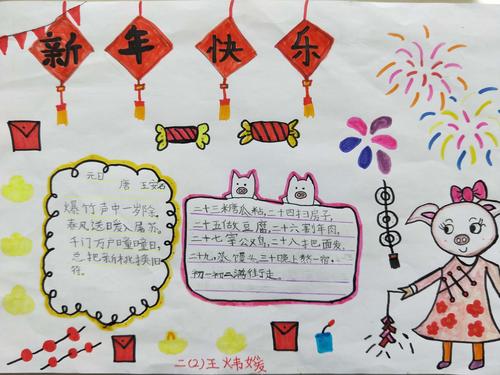 新年快乐
元日
唐 王安石
爆竹声中一岁除,
春风送暖入屠苏,
千门万户曈曈日,
总把新桃换旧
符。
二十三糖瓜粘,二十四扫房子,
二十五做豆腐,二十六割年肉,
二十七宰公鸡,二十八把面发,
二十九,蒸馒头,三十晚上熬一宿,
初一初二满街走。
二(2)王炜媛